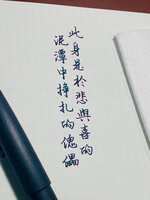 此身是於悲與喜的
泥潭中掙扎的傀儡